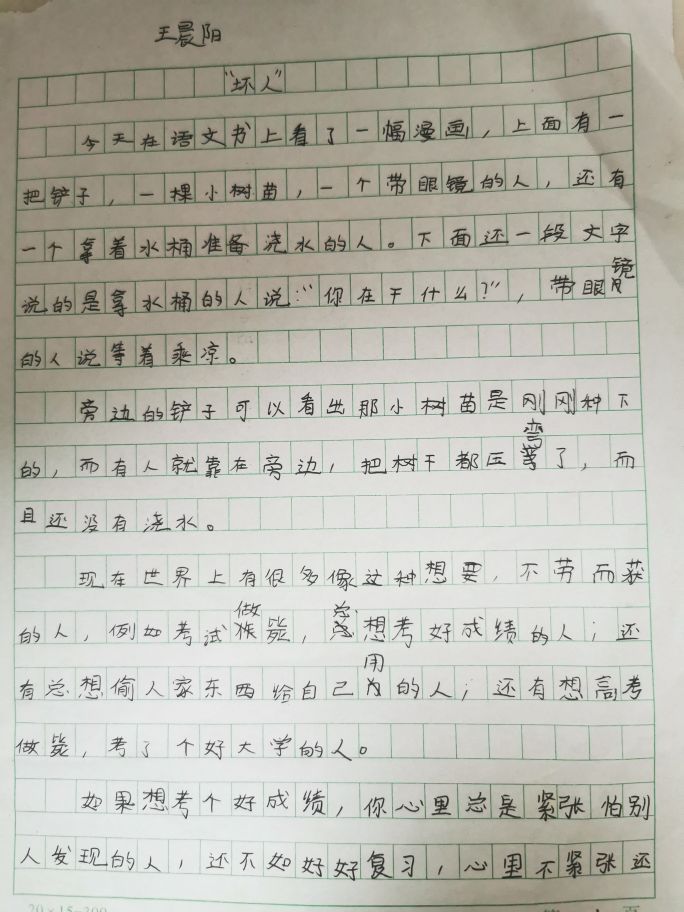 王晨阳
“坏人”
今天在语文书上看了一幅漫画，上面有一
把铲子，一棵小树苗，一个带眼镜的人，还有
一个拿着水桶准备浇水的人。下面还一段文字
说的是拿水桶的人说：“你在干什么？”，带眼镜
的人说等着乘凉。
旁边的铲子可以看出那小树苗是刚刚种下
的，而有人就靠在旁边，把树干都压弯了，而
且还没有浇水。
现在世界上有很多像这种想要，不劳而获
的人，例如考试做毙，总想考好成绩的人；还
有总想偷人家东西给自己用的人；还有想高考
做毙，考了个好大学的人。
如果想考个好成绩，你心里总是紧张怕别
人发现的人，还不如好好复习，心里不紧张还
20×15=300